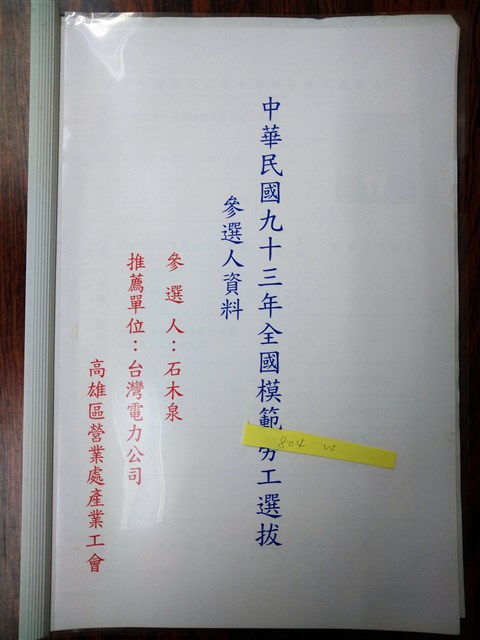 中華民國九十三年全國模範勞工選拔
參選人資料
參選人：石木泉
推薦單位：台灣電力公司
高雄區營業處產業工會
804 w